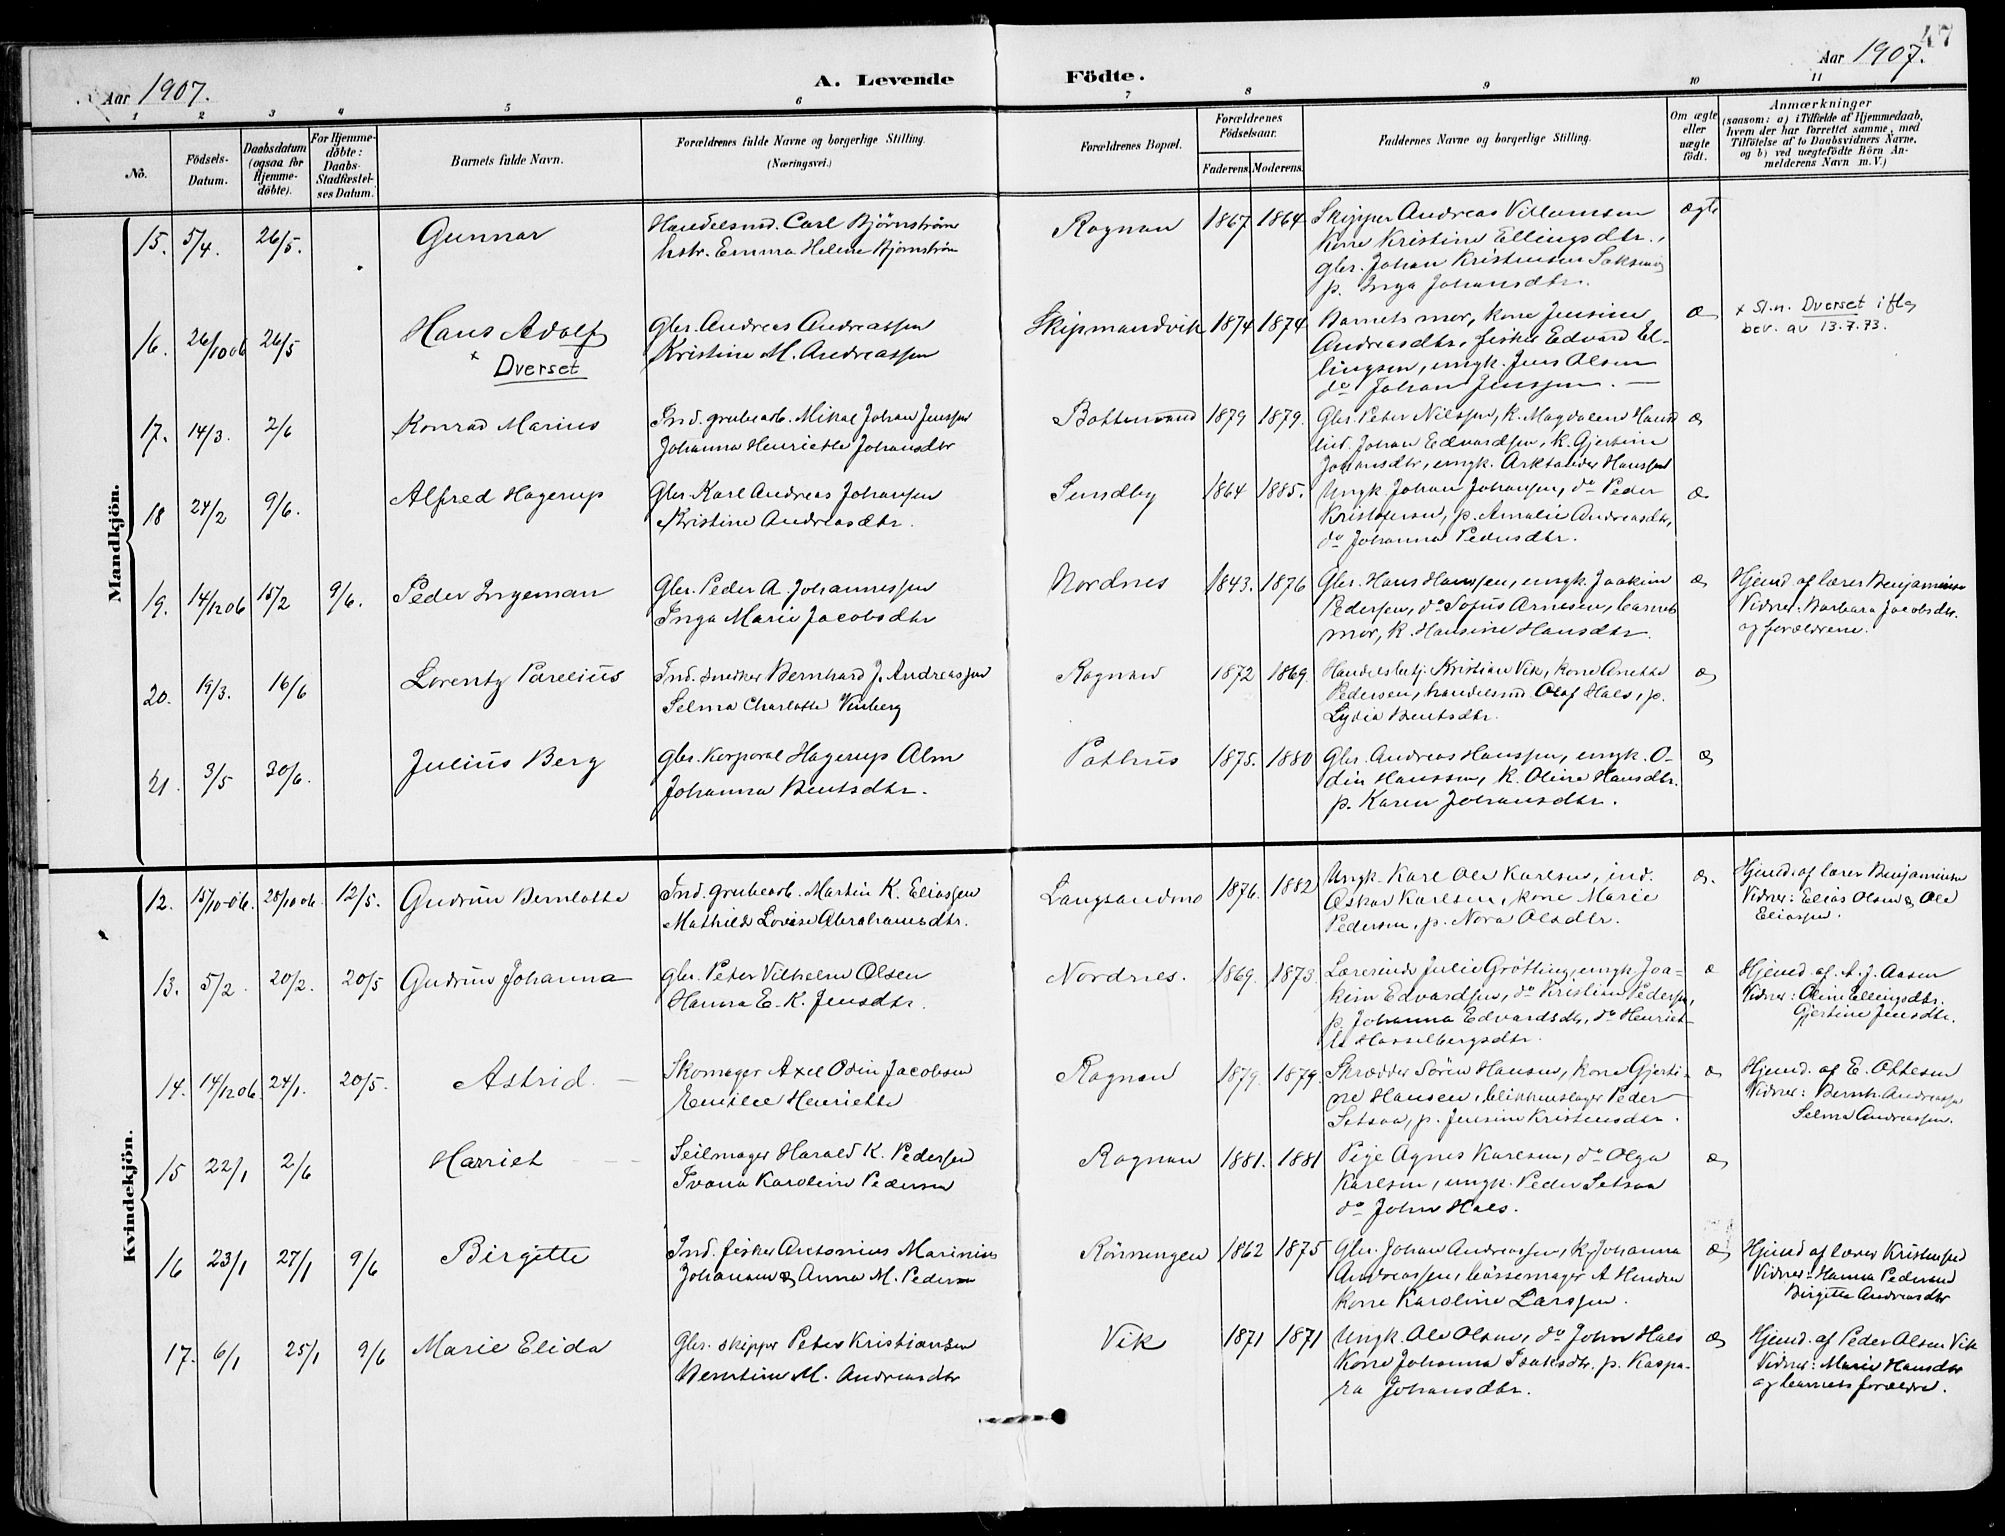 47
Aar 1907.
A. Levende Födte.
Aar 1907.
1 2 3 4 5 6 7 8 9 10 11
No.
Födsels-Datum.
Daabsdatum (ogsaa for Hjemme-döbte).
For Hjemme-döbte: Daabs-Stadfæstel-ses Datum.
Barnets fulde Navn.
Forældrenes fulde Navne og borgerlige Stilling. (Næringsvei.)
Forældrenes Bopæl.
Forældrenes Födselsaar.
Faderens. Moderens.
Faddernes Navne og borgerlige Stilling.
Om ægte eller uægte födt.
Anmærkninger
(saasom: a) i Tilfælde af Hjemmedaab,
hvem der har forrettet samme, med
Tilföielse af to Daabsvidners Navne,
og b) ved uægtefödte Börn An-
melderens Navn m. V.)
Mandkjön.
15. 5/4. 26/5. Gunnar
Handelsmd. Carl Bjørnstrøm
hstr. Emma Helene Bjørnstrøm
Rognan 1867 1864
Skipper Andreas Villumsen
Kone Kristine Ellingsdtr.,
gbr. Johan Kristensen Saksenvig
p. Inga Johansdtr.
ægte
16. 26/10 06 26/5 Hans Adolf
x Dverset
Gbr. Andreas Andreassen
Kristine M. Andreassen
Skipmandvik 1874 1874
Barnets mor, kone Jensine
Andreasdtr., fisker Edvard El-
lingsen, ungk. Jens Olsen
do Johan Jenssen. —
æ
x Sl.n. Dverset iflg
bev. av 13.7.73.
17. 14/3. 2/6 Konrad Marius
Ind. grubearb. Mikal Johan Jenssen
Johanna Henriette Johansdtr
Bottenvand 1879 1879.
Gbr. Peter Nilssen, k. Magdalena Hansd
ind. Johan Edvardsen, k. Gjertine
Johansdtr, ungk. Arktander Hanssen
æ
18 24/2 9/6. Alfred Hagerup
Gbr. Karl Andreas Johansen
Kristine Andreasdtr.
Sundby 1864 1885.
Ungk. Johan Johansen, do Peder
Kristofersen, p. Amalie Andreasdtr,
do Johanna Pedersdtr.
æ
19. 14/12 06 15/2 9/6. Peder Ingeman
Gbr. Peder A. Johannessen
Inga Marie Jacobsdtr
Nordnes 1843. 1876
Gbr. Hans Hanssen, ungk. Joakim
Pedersen, do Sofus Arnesen, barnets
mor, K. Hansine Hansdtr.
æ
Hjemd. af lærer Benjaminsen
Vidner: Barbara Jacobsdtr.
og forældrene.
20. 19/3. 16/6 Lorentz Parelius
Ind. snedker Bernhard J. Andreassen
Selma Charlotte Vinberg
Rognan 1872 1869.
Handelsbetj. Kristian Vik, kone Anette
Pedersen, handelsmd. Olaf Hals, p.
Lydia Bentsdtr.
æ
21. 3/5 30/6. Julius Berg
Gbr. korporal Hagerup Alm
Johanna Bentsdtr.
Pothus 1875. 1880
Gbr. Andreas Hanssen, ungk. O-
din Hanssen, K. Oline Hansdtr.
p. Karen Johansdtr.
æ
Kvindekjön.
12. 15/10-06. 28/10 06. 12/5. Gudrun Bernlotte
Ind. grubearb. Martin K. Eliassen
Mathilde Lovise Abrahamsdtr.
Langsandmo 1876. 1882
Ungk. Karl Ole Karlsen, ind.
Oskar Karlsen, kone Marie
Pedersen, p. Nora Olsdtr.
æ.
Hjemd. af lærer Benjaminsen
Vidner: Elias Olsen & Ole
Eliassen.
13. 5/2. 20/2. 20/5 Gudrun Johanna
gbr. Peter Vilhelm Olsen
Hanna E. K. Jensdtr.
Nordnes. 1869. 1873.
Lærerinde Julie Grötting, ungk. Joa-
kim Edvardsen, do Kristian Pedersen,
p. Johanna Edvardsdtr, do Henriet-
te Hasselbergsdtr.
æ
Hjemd. af A. J. Aasen
Vidner: Oline Ellingsdtr.
Gjertine Jensdtr.
14. 14/12 06. 24/1. 20/5. Astrid. —
Skomager Axel Odin Jacobsen
Emilie Henriette
Rognan 1879. 1879.
Skrædder Sören Hansen, kone Gjerti-
ne Hansen, blikkenslager Peder
Setsaa, p. Jensine Kristensdtr.
æ
Hjemd. af E. Ottesen
Vidner: Bernh. Andreassen
Selma Andreassen.
15 22/1 2/6 Harriet
Seilmager Harald K. Pedersen
Ivana Karoline Pedersen
Rognan 1881. 1881
Pige Agnes Karlsen, do Olga
Karlsen, ungk. Peder Setsaa
do John Hals.
æ
16 23/1 27/1 9/6 Birgitte
Ind. fisker Antonius Marinius
Johansen & Anna M. Pedersen
Rönningen 1862 1875
Gbr. Johan Andreassen, K. Johanna
Andreassen, bössemager A Hendra
kone Karoline Larssen.
æ
Hjemd af lærer Kristensen
Vidner: Hanna Pedersen
Birgitte Andreasdtr
17. 6/1 25/1 9/6 Marie Elida
Gbr. skipper Peter Kristiansen
Berntine M. Andreasdtr
Vik 1871 1871
Ungk. Ole Olsen, do John Hals
Kone Johanna Isaksdtr. p. Kaspa-
ra Johansdtr.
æ
Hjemd. af Peder Olsen Vik
Vidner: Marie Hansdtr
og barnets forældre.